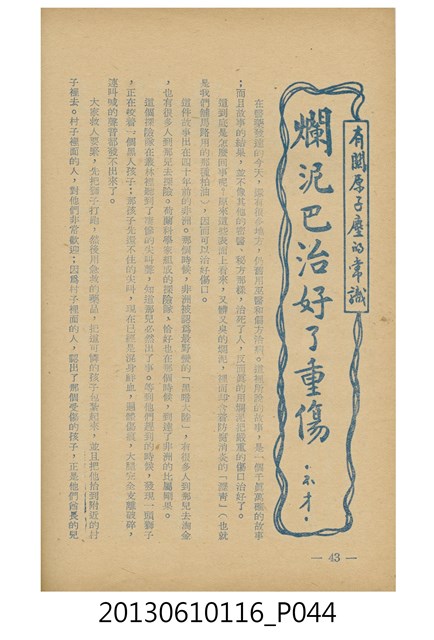 有關原子塵的常識
爛泥巴治好了重傷
·不才·
在醫藥發達的今天，還有很多地方，仍舊用巫醫和偏方治病。這裡所說的故事，是一個千眞萬確的故事
；而且故事的結果，並不像其他的密醫、秘方那樣，治死了人，反而眞的用爛泥把嚴重的傷口治好了。
這到底是怎麼回事呢？原來這些表面上看來，又髒又臭的爛泥，裡面却含着防腐消炎的「瀝青」（也就
是我們舖馬路用的那種柏油），因而可以治好傷口。
這件故事出在四十年前的非洲。那個時候，非洲被認爲最野蠻的「黑暗大陸」，有很多人到那兒去淘金
，也有很多人到那兒去探險。有個科學家組成的探險隊，恰好也在那個時候，到達了非洲的比屬剛果。
這個探險隊在叢林裡聽到了凄慘的尖叫聲，知道那兒必然出了事。等到他們趕到的時候，發現一頭獅子
，正在咬着一個黑人孩子；那孩子先還不住的尖叫，現在已經是滿身鮮血，遍體傷痕，大腿完全支離破碎，
連叫喊的聲音都發不出來了。
大家救人要緊，先把獅子打跑，然後用急救的藥品，把這可憐的孩子包紮起來，並且把他抬到附近的村
子裡去。村子裡面的人，對他們非常歡迎；因爲村子裡面的人，認出了那個受傷的孩子，正是他們酋長的兒
— 43 —
20130610116_P044